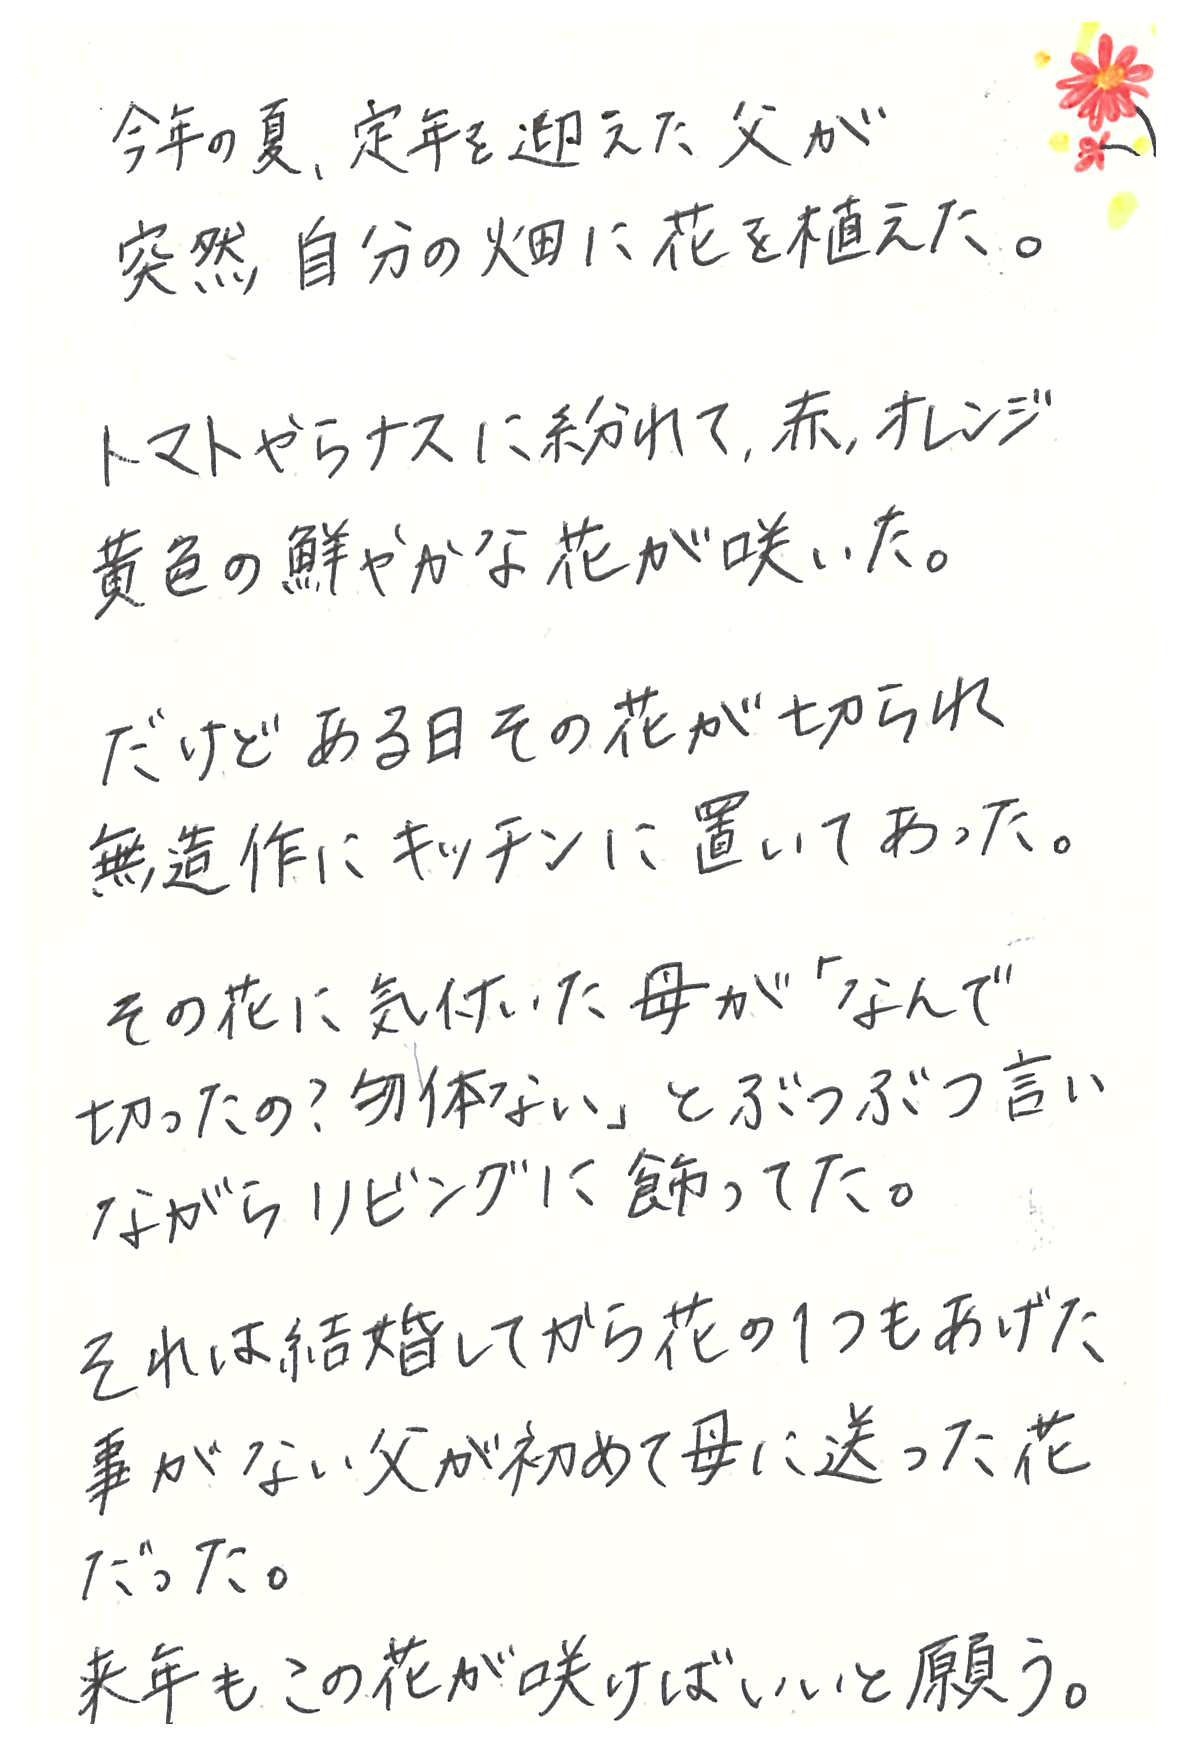 今年の夏、定年を迎えた父が
突然自分の畑に花を植えた。
トマトやらナスに紛れて,赤,オレンジ
黄色の鮮やかな花が咲いた。
だけどある日その花が切られ
無造作にキッチンに置いてあった。
その花に気付いた母が「なんで
切ったの?勿体ない」とぶつぶつ言い
ながらリビングに飾ってた。
それは結婚してから花の1つもあげた
事がない父が初めて母に送った花
だった。
来年もこの花が咲けばいいと願う。